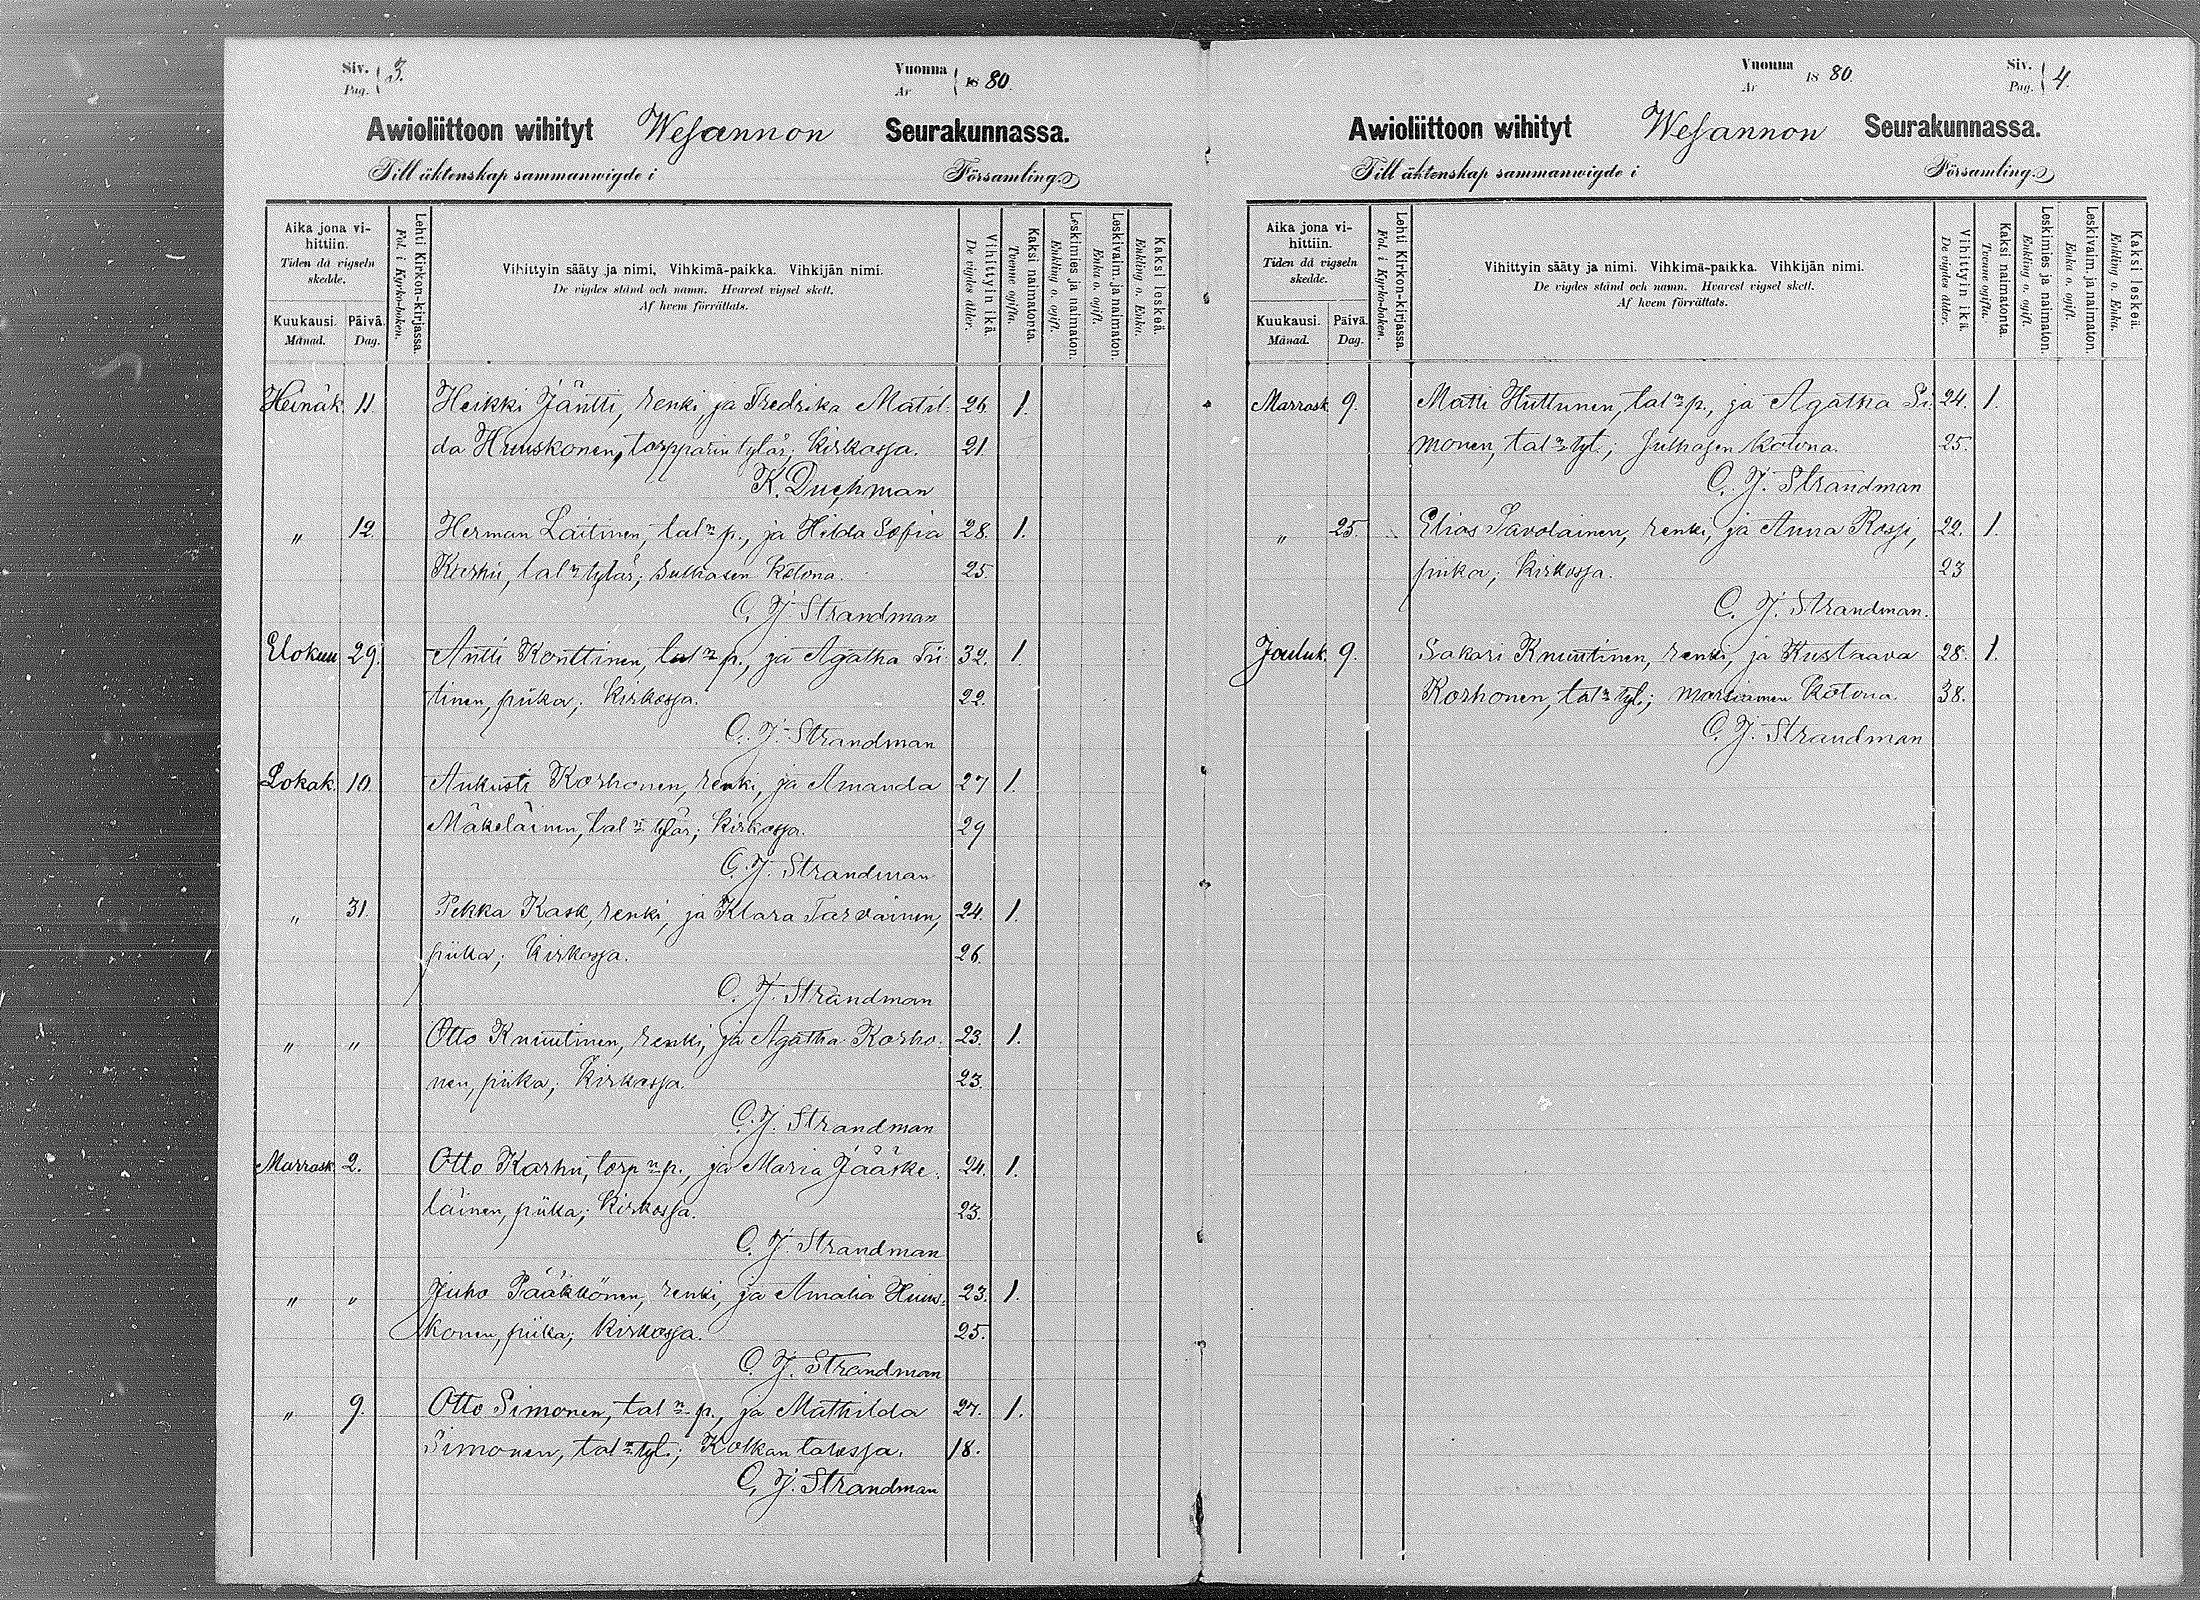 Siv. Pag. 3.
Vuonna År 1880.
Awioliittoon wihityt Wesannon Seurakunnassa.
Till äktenskap sammanwigde i Församling.
Aika jona vihittiin.
Tiden då vigseln skedde.
Kuukausi. Månad.
Päivä. Dag.
Lehti Kirkon-kirjassa.
Fol. i Kyrko-boken.
Vihittyin sääty ja nimi. Vihkimä-paikka. Vihkijän nimi.
De vigdes stånd och namn. Hvarest vigsel skett.
Af hvem förrättats.
Vihittyin ikä.
De vigdes ålder.
Kaksi naimatonta.
Tvenne ogifta.
Leskimies ja naimaton.
Enkling o. ogift.
Leskivaim. ja naimaton.
Enka o. ogift.
Kaksi leskeä.
Enkling o. Enka.
Heinäk. 11. Heikki Jäntti, renki, ja Fredrika Matil- 26. 1.
da Huuskonen, torpparin tytär; kirkossa. 21.
K. Duchman
" 12. Herman Laitinen, tal n p., ja Hilda Sofia 28. 1.
Karhu, tal n tytär; sulhasen kotona. 25.
C. J. Strandman
Elokuu 29. Antti Konttinen, tal n p., ja Agatha Tii- 32. 1.
tinen, piika; kirkossa. 22.
C. J. Strandman
Lokak. 10. Aukusti Korhonen, renki, ja Amanda 27 1.
Mäkeläinen, tal n tytär; kirkossa. 29
C. J. Strandman
" 31. Pekka Kask, renki, ja Klara Tarvainen, 24. 1.
piika; kirkossa. 26.
C. J. Strandman
" " Otto Knuutinen, renki, ja Agatha Korho- 23. 1.
nen, piika; kirkossa. 23.
C. J. Strandman
Marrask. 2. Otto Karhu, torp n p., ja Maria Jääske- 24. 1.
läinen, piika; kirkossa. 23.
C. J. Strandman
" " Juho Pääkkönen, renki, ja Amalia Huus- 23. 1.
konen, piika; kirkossa. 25.
C. J. Strandman
" 9. Otto Simonen, tal n p., ja Mathilda 27. 1.
Simonen, tal n tyt.; Kolkan talossa. 18.
C. J. Strandman
Vuonna År 1880.
Siv. Pag. 4.
Awioliittoon wihityt Wesannon Seurakunnassa.
Till äktenskap sammanwigde i Församling.
Aika jona vihittiin.
Tiden då vigseln skedde.
Kuukausi. Månad.
Päivä. Dag.
Lehti Kirkon-kirjassa.
Fol. i Kyrko-boken.
Vihittyin sääty ja nimi. Vihkimä-paikka. Vihkijän nimi.
De vigdes stånd och namn. Hvarest vigsel skett.
Af hvem förrättats.
Vihittyin ikä.
De vigdes ålder.
Kaksi naimatonta.
Tvenne ogifta.
Leskimies ja naimaton.
Enkling o. ogift.
Leskivaim. ja naimaton.
Enka o. ogift.
Kaksi leskeä.
Enkling o. Enka.
Marrask. 9. Matti Huttunen, tal n p., ja Agatha Si- 24. 1.
monen, tal n tyt.; sulhasen kotona. 25.
C. J. Strandman
" 25. Elias Savolainen, renki, ja Anna Rossi, 22. 1.
piika; kirkossa. 23
C. J. Strandman.
Jouluk. 9. Sakari Knuutinen, renki, ja Kustaava 28. 1.
Korhonen, tal n tyt.; morsiamen kotona. 38.
C. J. Strandman